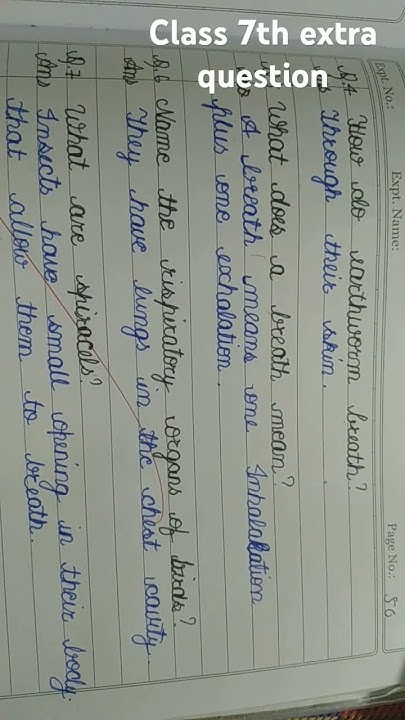 Class 7th extra
question
Expt. No.:
Expt. Name:
Page No.: 56
Q.4 How do earthworm breath?
Through their skin.
What does a breath mean?
A breath means one Inhalation
plus one exhalation.
Q.6 Name the rispiratory organs of birds?
Ans They have lungs in the chest cavity.
Q.7 What are spiracels?
Ans Insects have small opening in their body.
that allow them to breath.